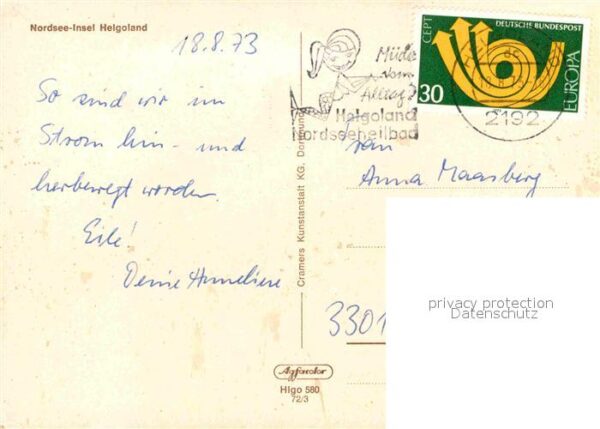 Nordsee-Insel Helgoland
18.8.73
So sind wir im
Strom hin- und
herbewegt worden.
Eile!
Deine Anneliese
Cramers Kunstanstalt KG. Dortmund
Agfacolor
Higo 580
72/3
Müde
vom
Alltag?
Helgoland
Nordseeheilbad
CEPT
DEUTSCHE BUNDESPOST
EUROPA
30
2192
Frau
Anna Maasberg
3301
privacy protection
Datenschutz